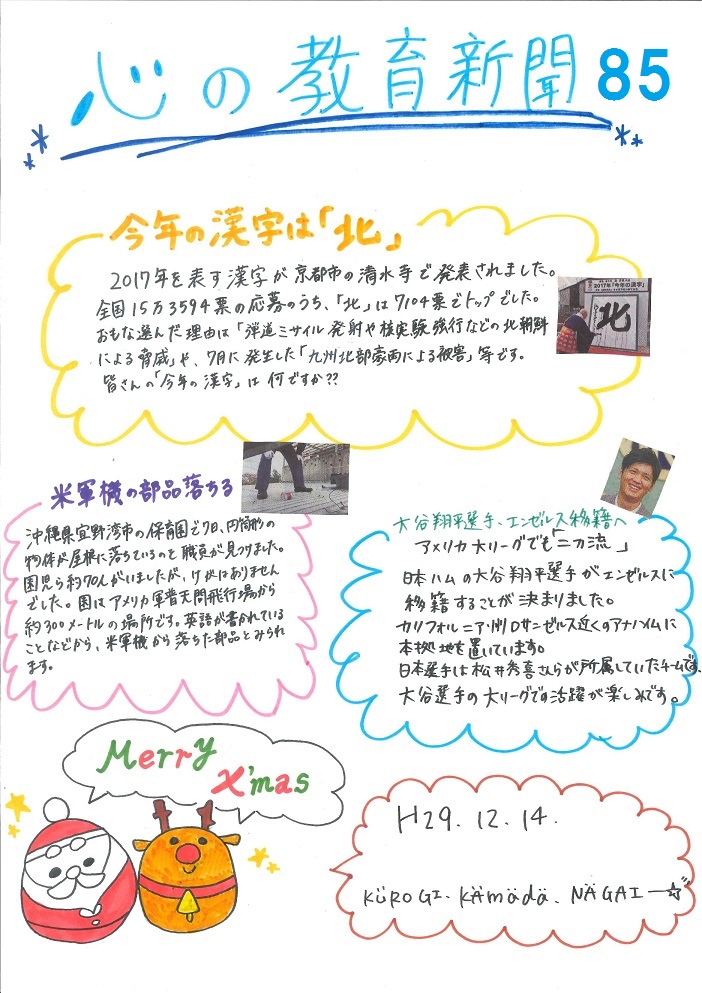 心の教育新聞 85
今年の漢字は「北」
2017年を表す漢字が京都市の清水寺で発表されました。
全国15万3594票の応募のうち、「北」は7104票でトップでした。
おもな選んだ理由は「弾道ミサイル発射や核実験強行などの北朝鮮
による脅威」や、7月に発生した「九州北部豪雨による被害」等です。
皆さんの「今年の漢字」は何ですか??
2017年「今年の漢字」
北
米軍機の部品落ちる
沖縄県宜野湾市の保育園で7日、円筒形の
物体が屋根に落ちているのを職員が見つけました。
園児ら約70人がいましたが、けがはありません
でした。園はアメリカ軍普天間飛行場から
約300メートルの場所です。英語が書かれている
ことなどから、米軍機から落ちた部品とみられ
ます。
大谷翔平選手、エンゼルス移籍へ
アメリカ大リーグでも「二刀流」
日本ハムの大谷翔平選手がエンゼルスに
移籍することが決まりました。
カリフォルニア州ロサンゼルス近くのアナハイムに
本拠地を置いています。
日本選手は松井秀喜さんらが所属していたチームです。
大谷選手の大リーグでの活躍が楽しみです。
Merry
X'mas
H29.12.14.
KUROGI. Kamada. NAGAI